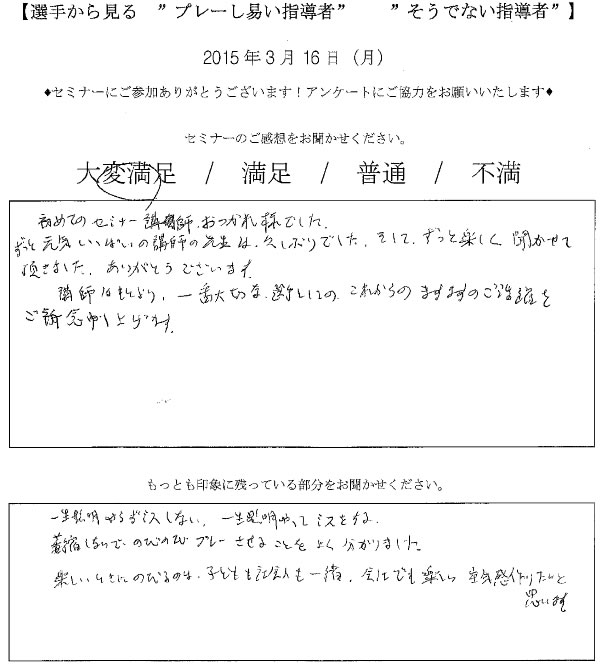 【選手から見る ”プレーし易い指導者” ”そうでない指導者”】
2015年3月16日（月）
♦セミナーにご参加ありがとうございます！アンケートにご協力をお願いいたします♦
セミナーのご感想をお聞かせください。
大変満足 / 満足 / 普通 / 不満
初めてのセミナー講師、おつかれ様でした。
ずっと元気いっぱいの講師の先生は、久しぶりでした。そして、ずっと楽しく聞かせて
頂きました。ありがとうございます。
講師はもとより、一番大切な、選手としての、これからのますますのご活躍を
ご祈念申し上げます。
もっとも印象に残っている部分をお聞かせください。
一生懸命やるがミスしない、一生懸命やってミスをする、
萎縮しないで、のびのびプレーさせることをよく分かりました。
楽しいときにのびるのは、子どもも社会人も一緒、会社でも楽しい空気感作りたいと
思います